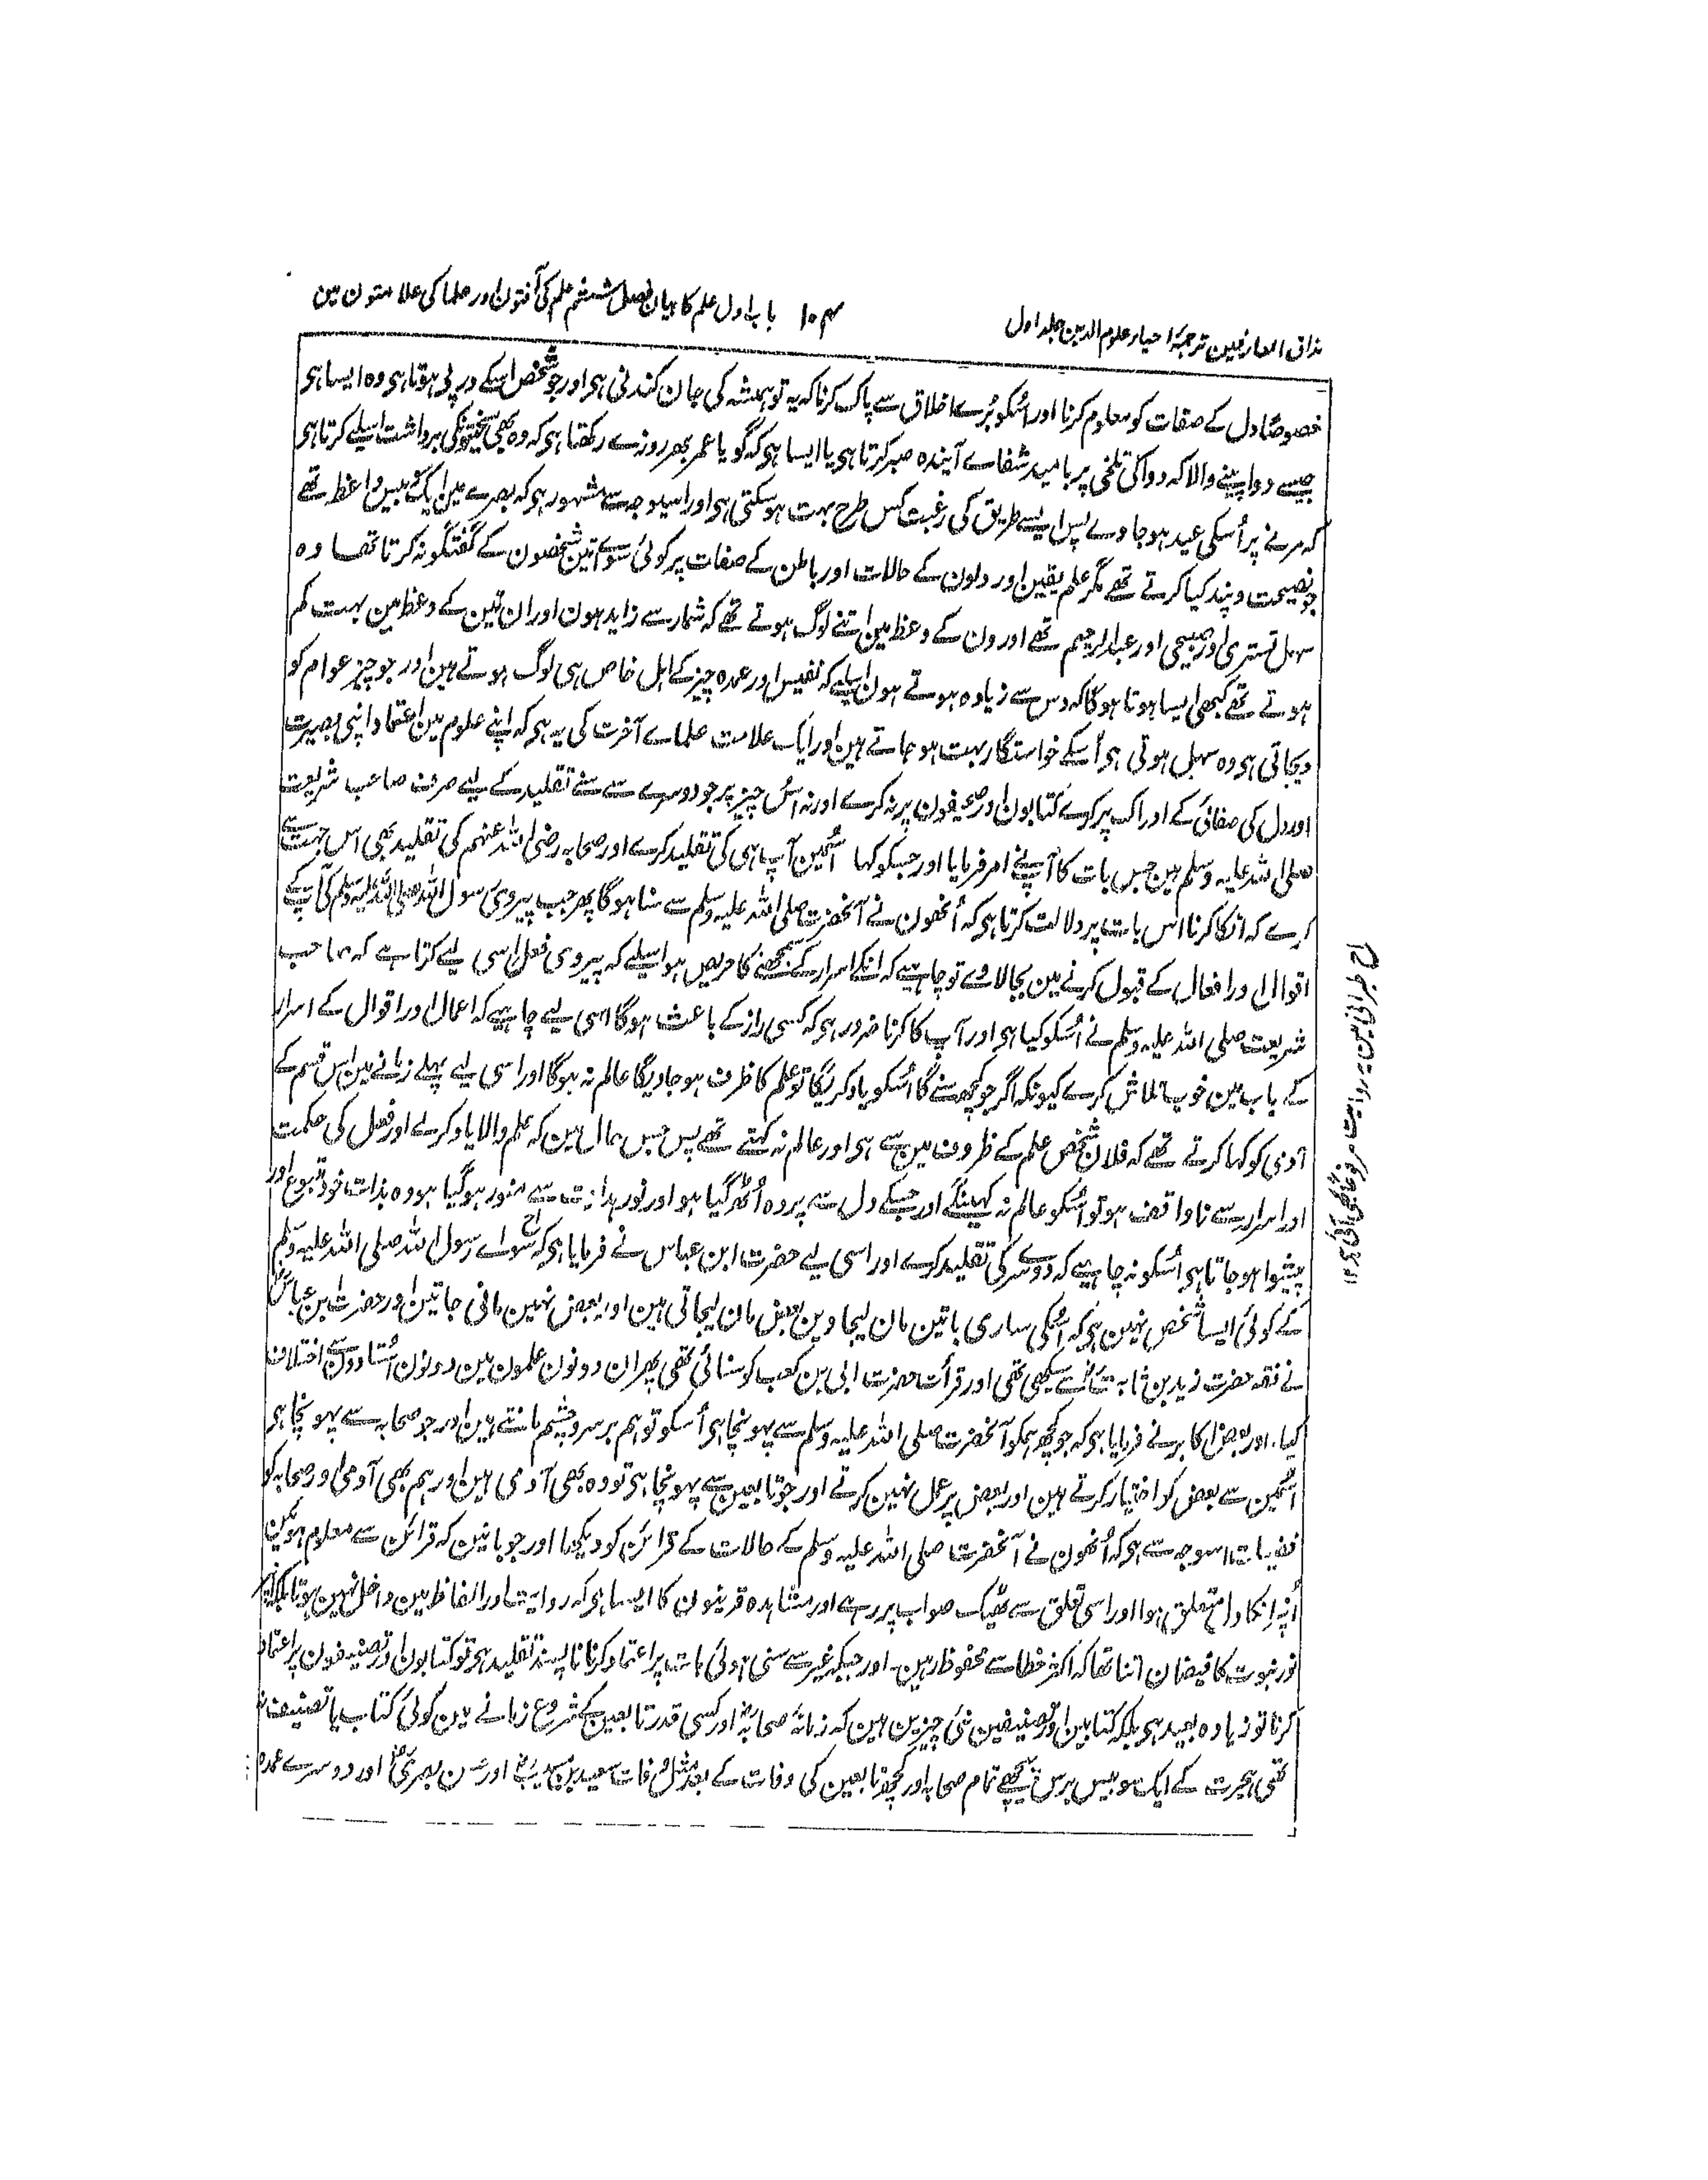 مذاق العارفین ترجمۂ احیاء علوم الدین جلد اول
۱۰۴
باب اول علم کا بیان فصل ششم علم کی آفتون اور علما کی علامتون مین
خصوصًا دل کے صفات کو معلوم کرنا اور اُسکو بُرے اخلاق سے پاک کرنا کہ یہ تو ہمیشہ کی جان کندنی ہی اور جو شخص اسکے درپے ہوتا ہی وہ ایسا ہی
جیسے دوا پینے والا کہ دوا کی تلخی پر بامید شفاے آیندہ صبر کرتا ہی یا ایسا ہی کہ گویا عمر بھر روزے رکھتا ہی کہ وہ بھی سختیونکی برداشت اسلیے کرتا ہی
کہ مرنے پر اُسکی عید ہو جاوے پس ایسے طریق کی رغبت کس طرح بہت ہو سکتی ہی اور اسیوجہ سے مشہور ہی کہ بصرے مین ایک سو بیس واعظ تھے
جو نصیحت و پند کیا کرتے تھے مگر علم یقین اور دلون کے حالات اور باطن کے صفات پر کوئی سواے تین شخصون کے گفتگو نہ کرتا تھا وہ
سہل تستری اور صبیحی اور عبدالرحیم تھے اور ون کے وعظ مین اتنے لوگ ہوتے تھے کہ شمار سے زاید ہون اور ان تین کے وعظ مین بہت کم
ہوتے تھے کبھی ایسا ہوتا ہو گا کہ دس سے زیادہ ہوتے ہون اسلیے کہ نفیس اور عمدہ چیز کے اہل خاص ہی لوگ ہوتے ہین اور جو چیز عوام کو
دیجاتی ہی وہ سہل ہوتی ہی اُسکے خواستگار بہت ہو جاتے ہین اور ایک علامت علماے آخرت کی یہ ہی کہ اپنے علوم مین اعتماد اپنی بصیرت
اور دل کی صفائی کے ادراک پر کرے کتابون اور صحیفون پر نہ کرے اور نہ اُس چیز پر جو دوسرے سے سنے تقلید کے لیے صرف صاحب شریعت
صلی اللہ علیہ وسلم ہین جس بات کا آپنے امر فرمایا اور جسکو کہا اُسمین آپ ہی کی تقلید کرے اور صحابہ رضی اللہ عنہم کی تقلید بھی اس جہت سے
کرے کہ انکا کرنا اس بات پر دلالت کرتا ہی کہ اُنھون نے آنحضرت صلی اللہ علیہ وسلم سے سنا ہو گا پھر جب پیروی رسول اللہ صلی اللہ علیہ وسلم کی آپ کے
اقوال اور افعال کے قبول کرنے مین بجا لاوے تو چاہیے کہ انکے اسرار کے سمجھنے کا حریص ہو اسلیے کہ پیروی فعل اسی لیے کرتا ہے کہ صاحب
شریعت صلی اللہ علیہ وسلم نے اُسکو کیا ہی اور آپ کا کرنا ضرور ہی کہ کسی راز کے باعث ہو گا اسی لیے چاہیے کہ اعمال اور اقوال کے اسرار
کے باب مین خوب تلاش کرے کیونکہ اگر جو کچھ سنے گا اُسکو یاد کر لیگا تو علم کا ظرف ہو جاویگا عالم نہ ہو گا اور اسی لیے پہلے زمانے مین اس قسم کے
آدمی کو کہا کرتے تھے کہ فلان شخص علم کے ظروف مین سے ہی اور عالم نہ کہتے تھے پس جس حال مین کہ علم والا یاد کر لے اور فعل کی حکمت
اور اسرار سے ناواقف ہو تو اُسکو عالم نہ کہینگے اور جسکے دل سے پردہ اُٹھ گیا ہو اور نور ہدایت سے منور ہو گیا ہو وہ بذات خود متبوع اور
پیشوا ہو جاتا ہی اُسکو نہ چاہیے کہ دوسرے کی تقلید کرے اور اسی لیے حضرت ابن عباس نے فرمایا ہی کہ سواے رسول اللہ صلی اللہ علیہ وسلم
کے کوئی ایسا شخص نہین ہی کہ اُسکی ساری باتین مان لیجاوین بعض مان لیجاتی ہین اور بعض نہین مانی جاتین اور حضرت ابن عباس
نے فقہ حضرت زید بن ثابت سے سیکھی تھی اور قرأت حضرت ابی بن کعب کو سنائی تھی پھر ان دونون علمون مین دونون اُستادون سے اختلاف
کیا۔ اور بعض اکابر نے فرمایا ہی کہ جو کچھ ہمکو آنحضرت صلی اللہ علیہ وسلم سے پہونچا ہی اُسکو تو ہم بر سر و چشم مانتے ہین اور جو صحابہ سے پہونچا ہی
اُسمین سے بعض کو اختیار کرتے ہین اور بعض پر عمل نہین کرتے اور جو تابعین سے پہونچا ہی تو وہ بھی آدمی ہین اور ہم بھی آدمی اور صحابہ کو
فضیلت اسوجہ سے ہی کہ اُنھون نے آنحضرت صلی اللہ علیہ وسلم کے حالات کے قرائن کو دیکھا اور جو باتین کہ قرائن سے معلوم ہوئین
اُنپر انکا دل متعلق ہوا اور اسی تعلق سے ٹھیک صواب پر رہے اور مشاہدہ قرینون کا ایسا ہی کہ روایت اور الفاظ مین داخل نہین ہوتا بلکہ
نور نبوت کا فیضان اتنا تھا کہ اکثر خطا سے محفوظ رہین۔ اور جبکہ غیر سے سنی ہوئی بات پر اعتماد کرنا ناپسند تقلید ہی تو کتابون اور تصنیفون پر اعتماد
کرنا تو زیادہ بعید ہی بلکہ کتابین اور تصنیفین نئی چیزین ہین کہ زمانہ صحابہ اور کسی قدر تابعین کے شروع زمانے مین کوئی کتاب یا تصنیف نہ
تھی ہجرت کے ایک سو بیس برس پیچھے تمام صحابہ اور کچھ تابعین کی وفات کے بعد مثل وفات سعید بن مسیب اور حسن بصری اور دوسرے عمدہ